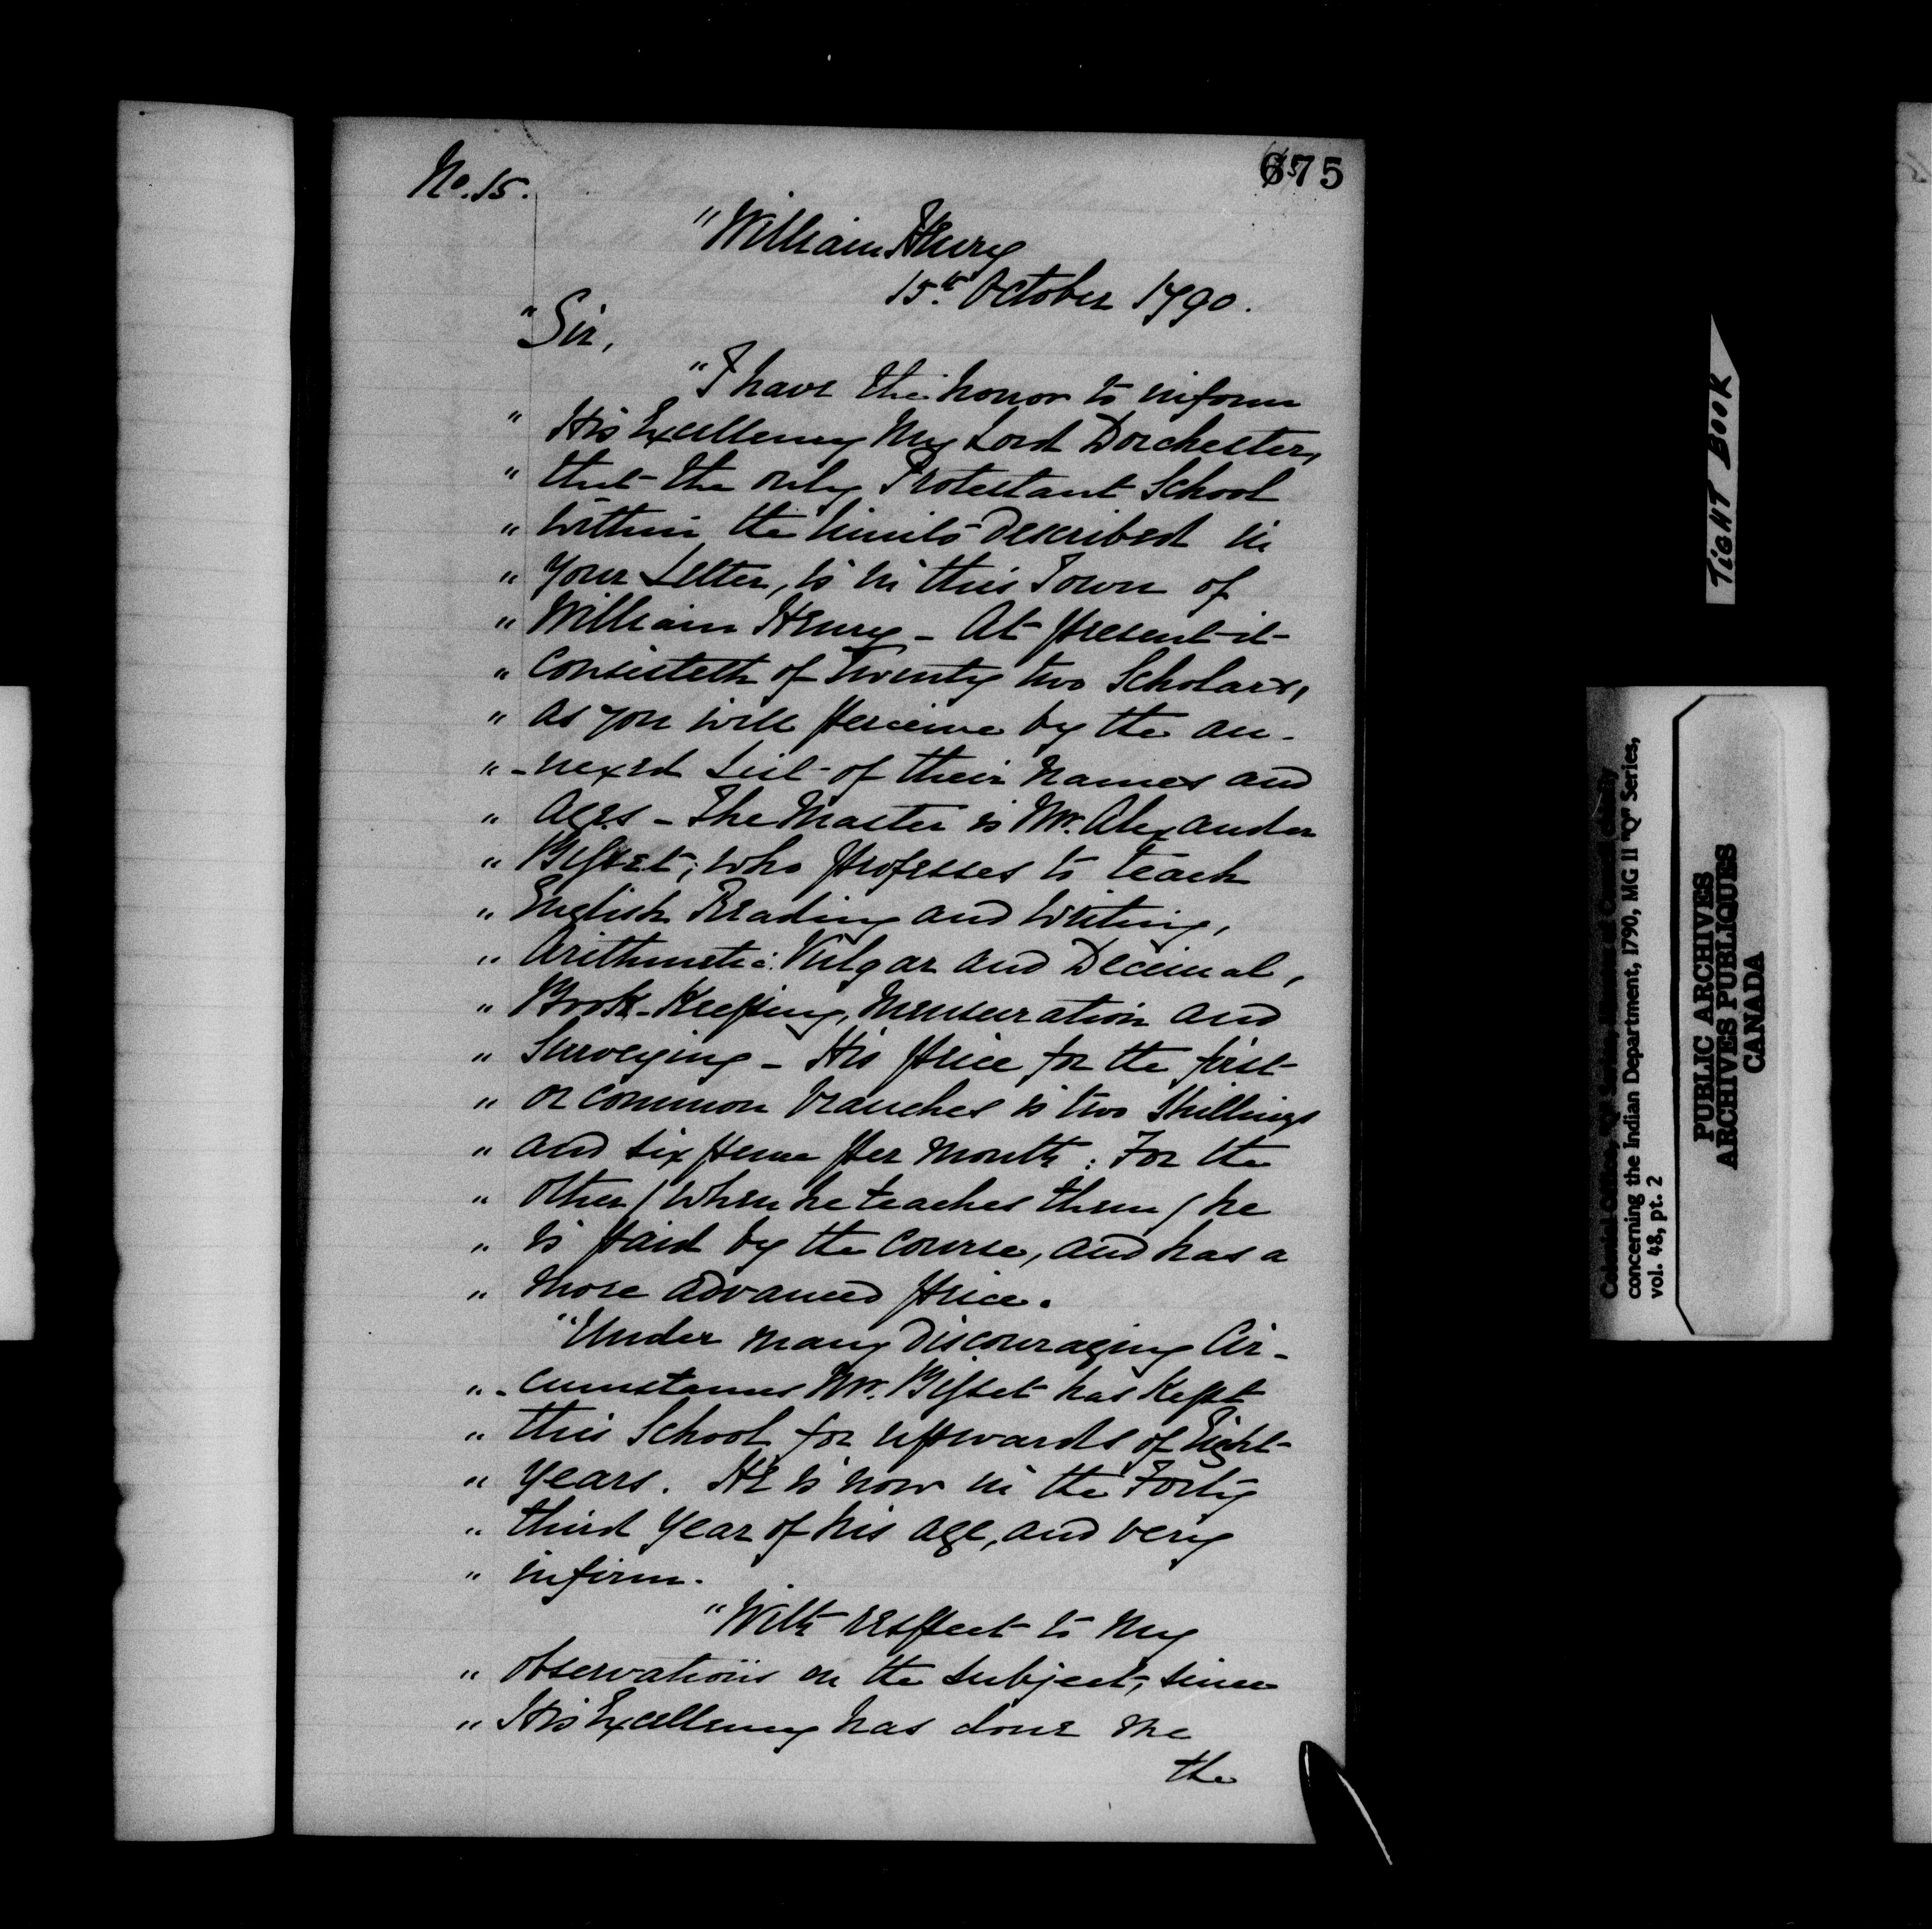 No. 15.
675
"William Henry
15th October 1790.
"Sir,
"I have the honor to inform
" His Excellency My Lord Dorchester,
" that the only Protestant School
" within the limits described in
" your Letter, is in this Town of
" William Henry - At present it
" consisteth of Twenty two Scholars,
" as you will perceive by the an-
" -nexed List of their names and
" ages - The Master is Mr. Alexander
" Bisset; who professes to teach
" English Reading and Writing,
" Arithmetic: Vulgar and Decimal,
" Book-Keeping, Mensuration and
" Surveying - His price for the first
" or common branches is two Shillings
" and six pence per month: For the
" other / when he teaches them / he
" is paid by the course, and has a
" more advanced price.
"Under many discouraging Cir-
" -cumstances Mr. Bisset has kept
" this School for upwards of Eight
" years. He is now in the Forty
" third year of his age, and very
" infirm.
"With respect to my
" observations on the subject, since
" His Excellency has done me
the
TIGHT BOOK
concerning the Indian Department, 1790, MG II "Q" Series,
vol. 48, pt. 2
PUBLIC ARCHIVES
ARCHIVES PUBLIQUES
CANADA